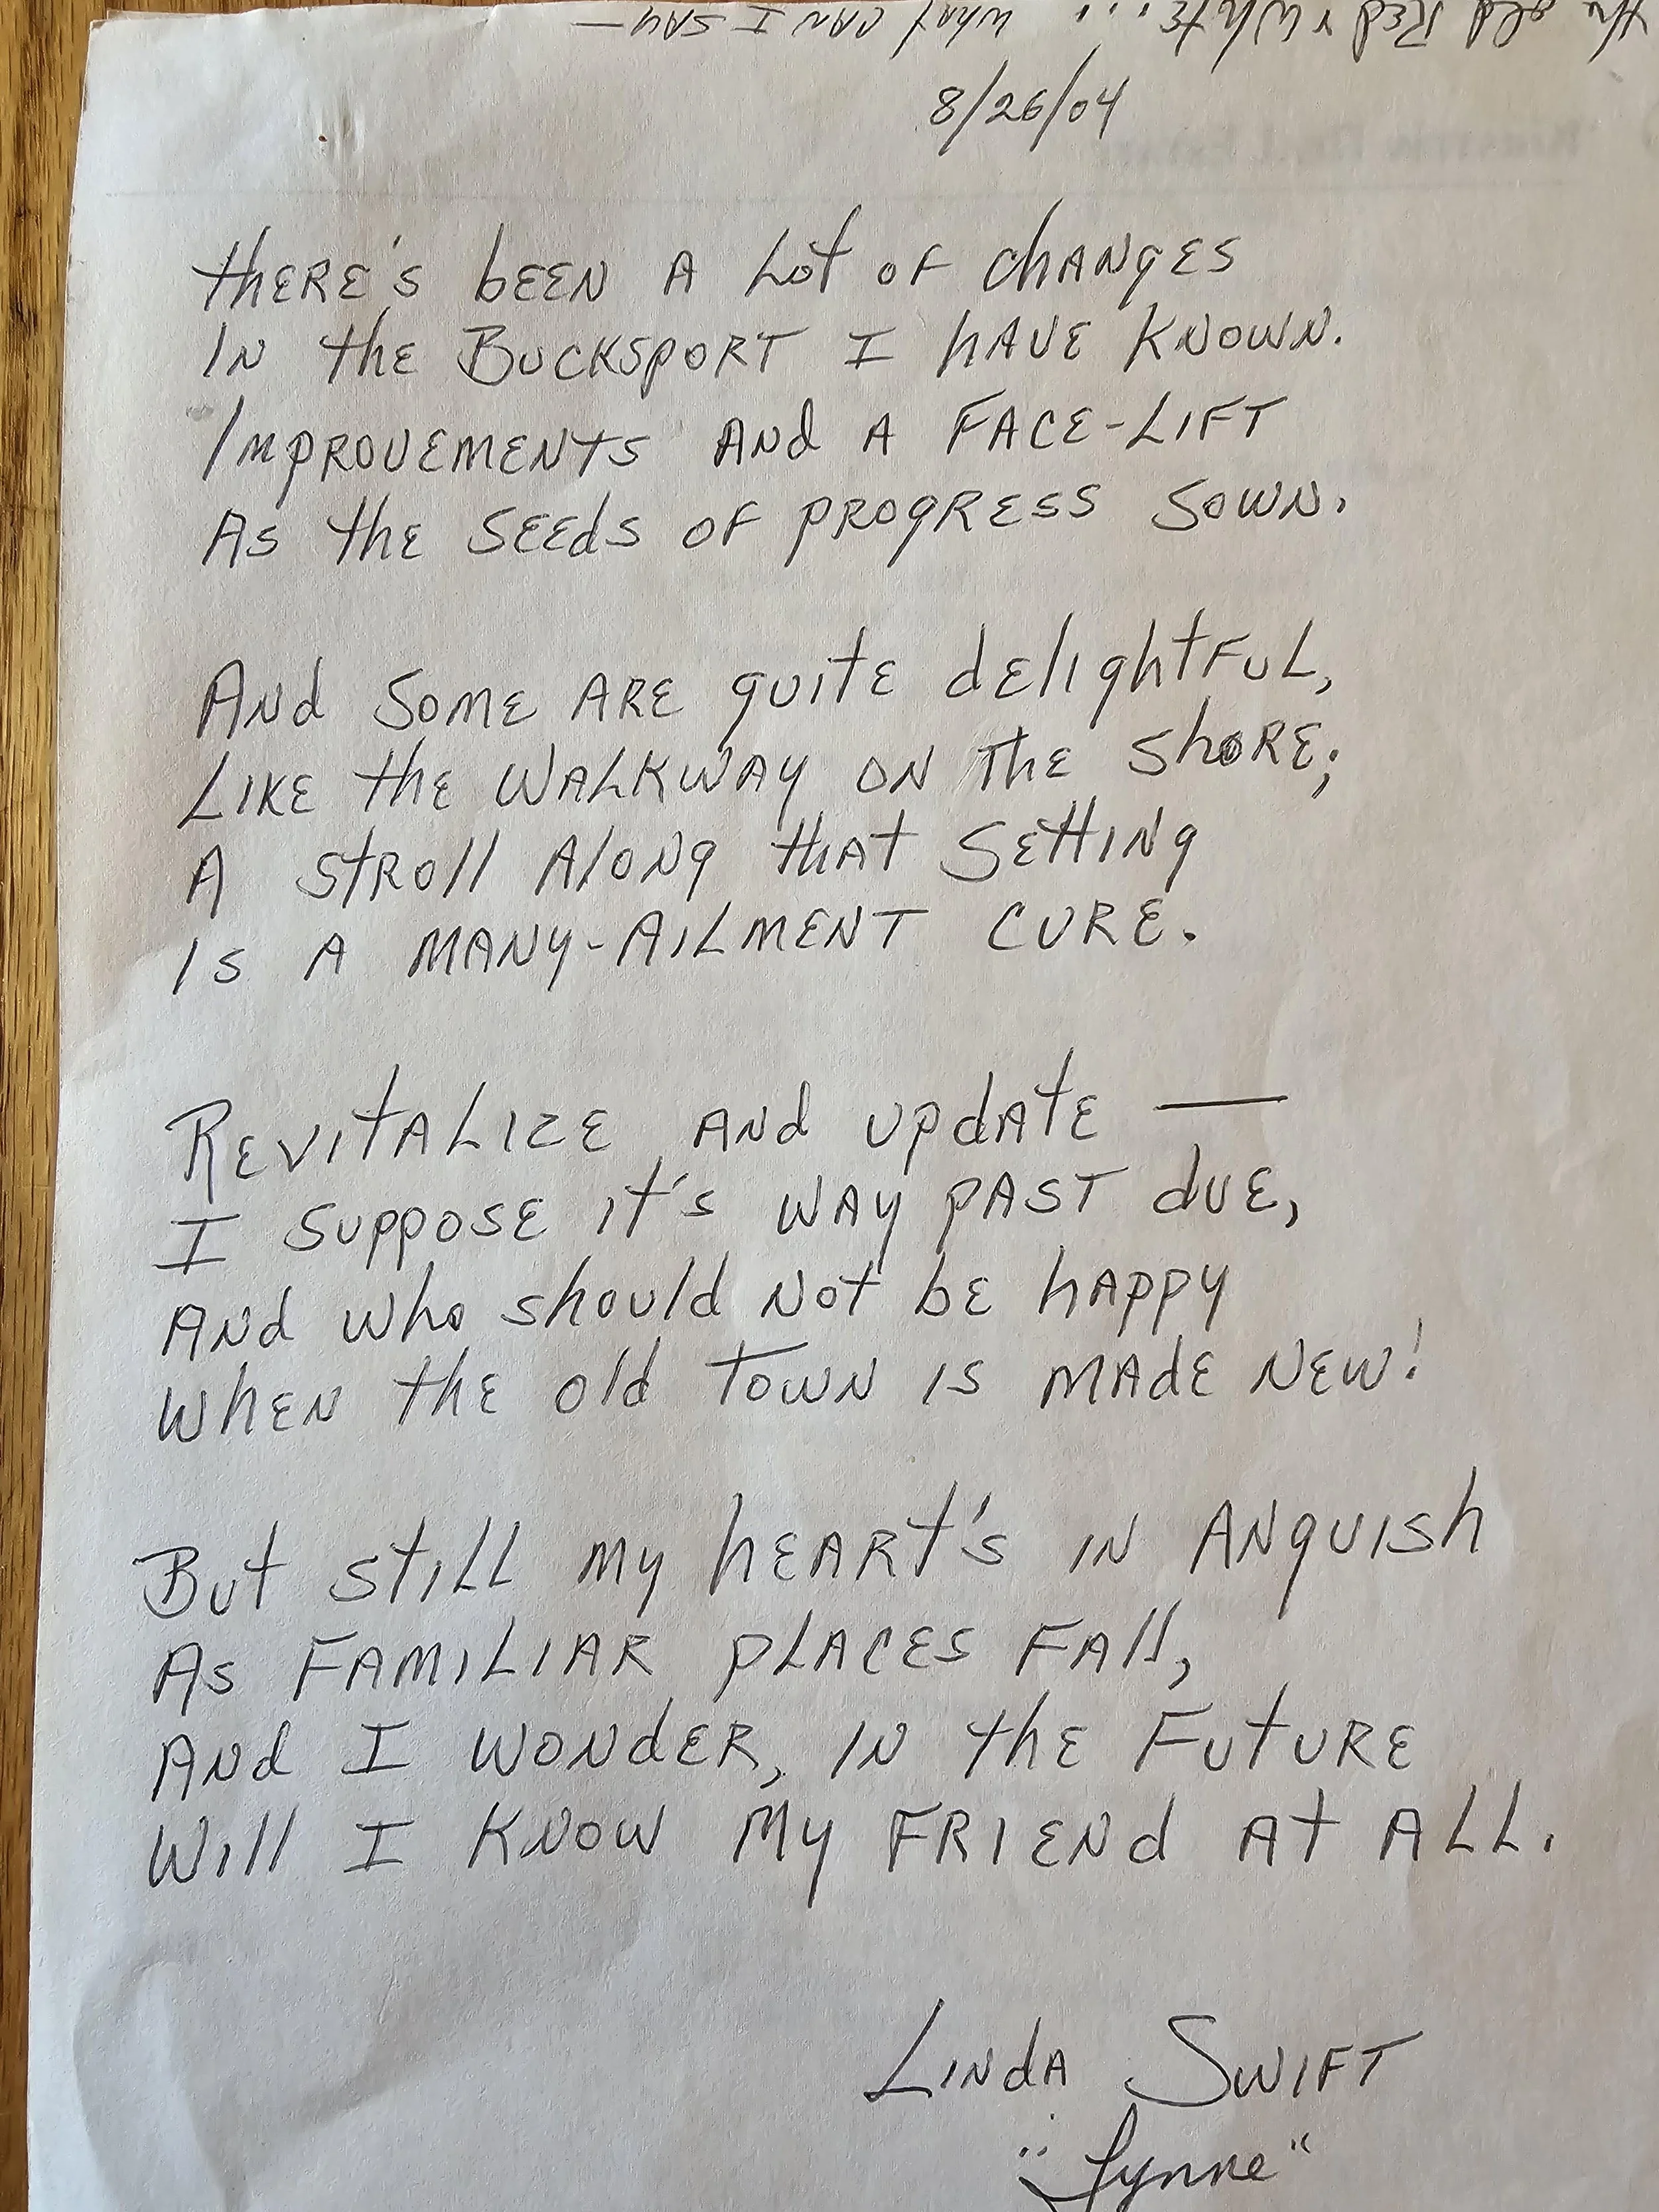 the old Red & White... what can I say—
8/26/04
There's been a lot of changes
In the Bucksport I have known.
Improvements and a face-lift
As the seeds of progress sown.
And some are quite delightful,
Like the walkway on the shore;
A stroll along that setting
Is a many-ailment cure.
Revitalize and update —
I suppose it's way past due,
And who should not be happy
When the old town is made new!
But still my heart's in anguish
As familiar places fall,
And I wonder, in the future
Will I know my friend at all.
Linda Swift
"Lynne"